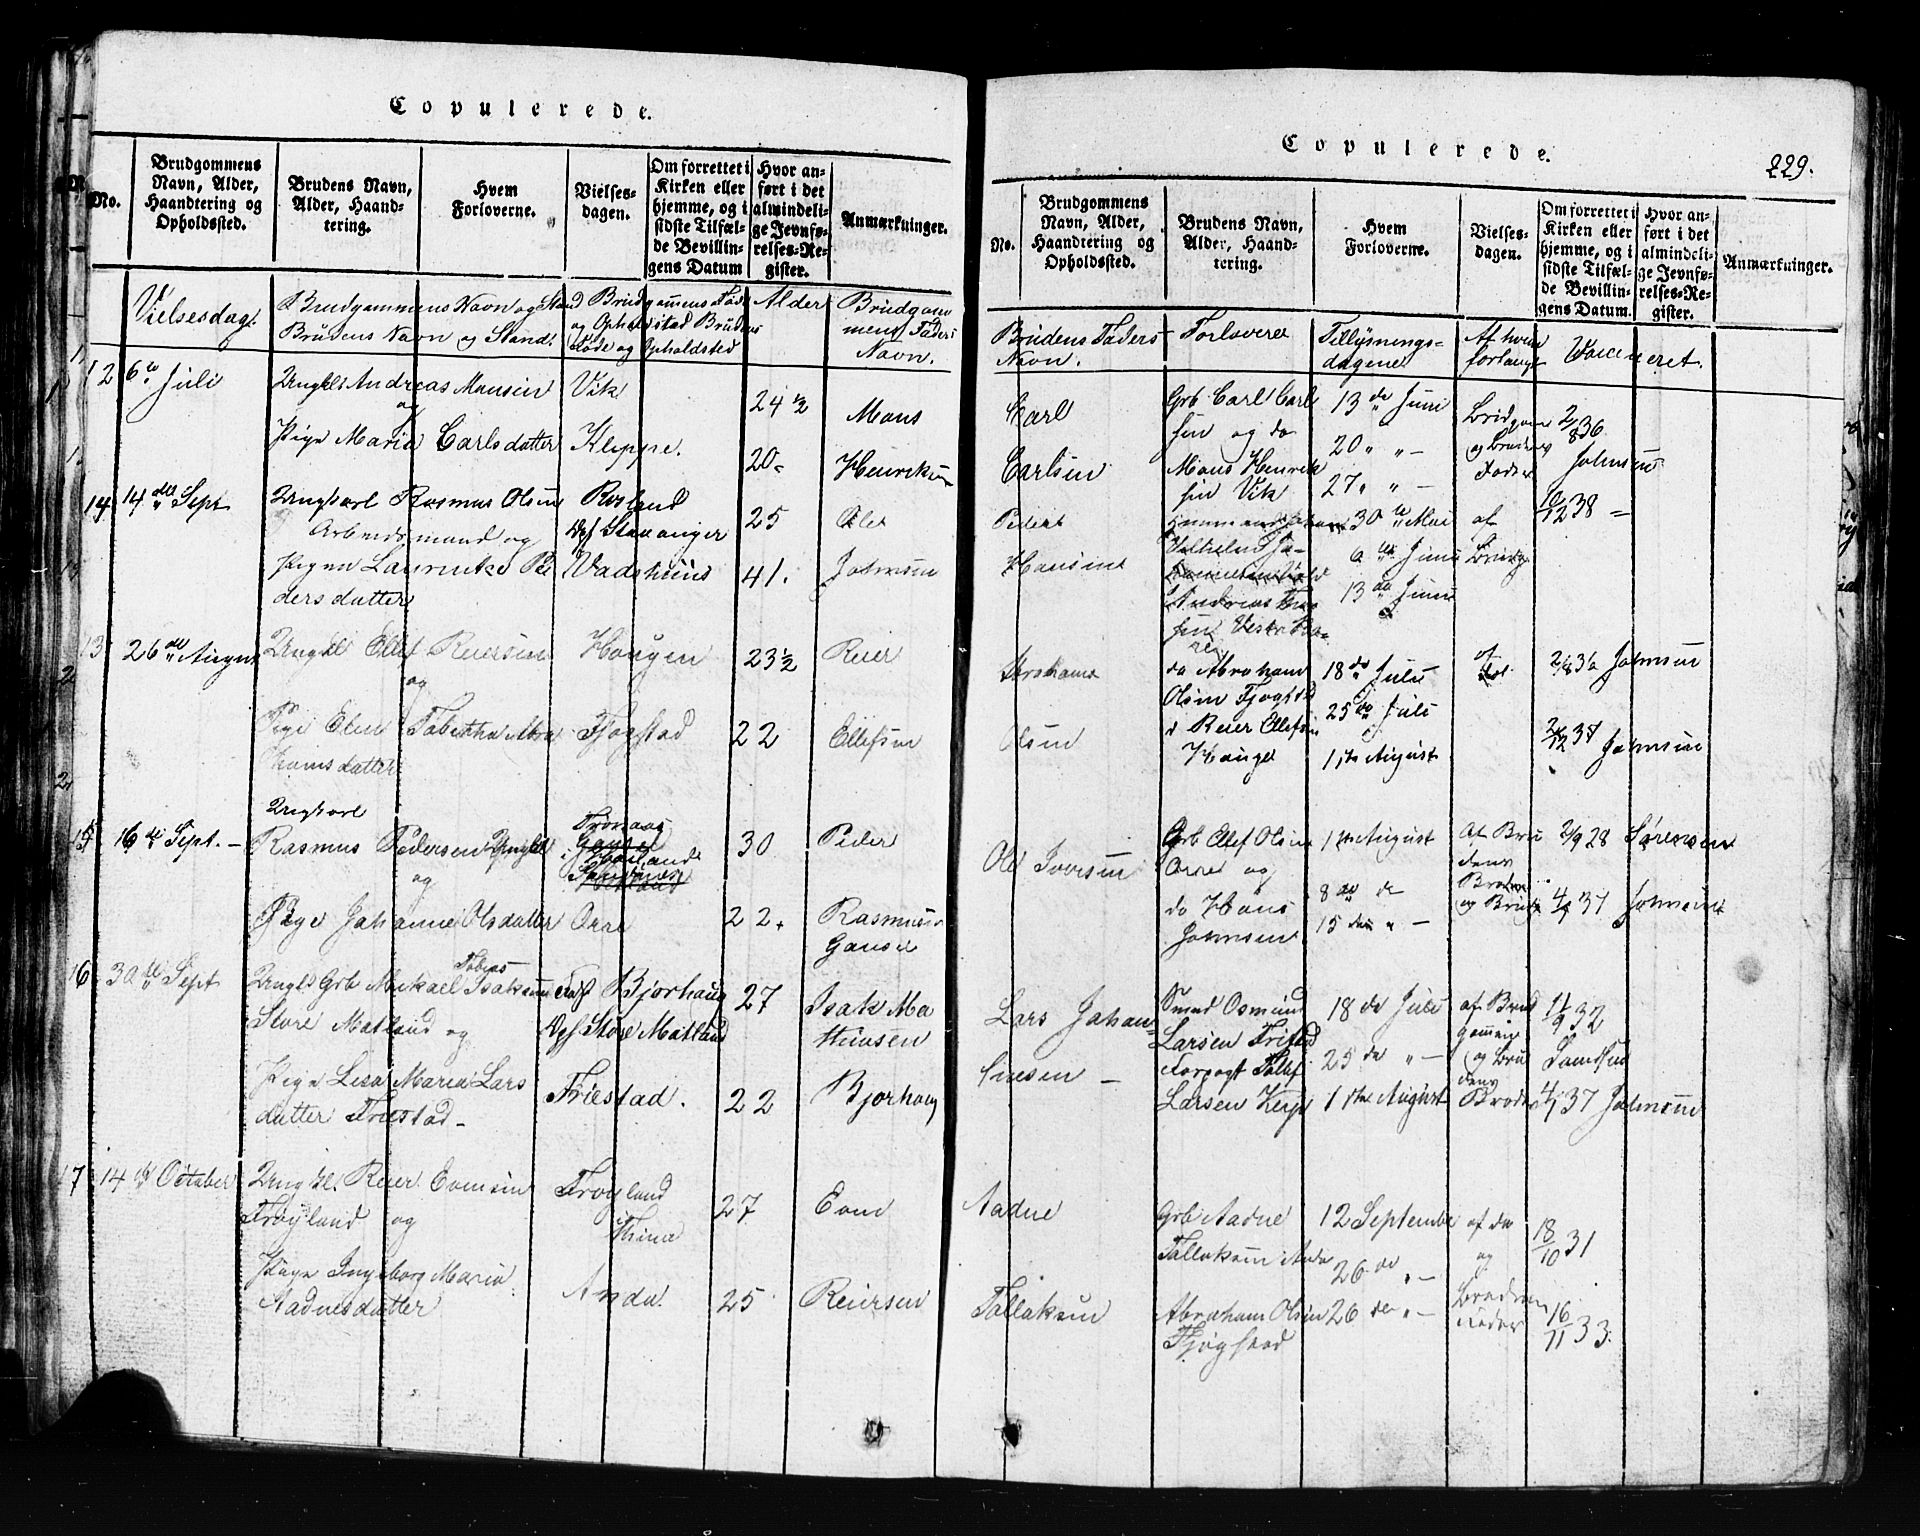 Copulerede.
No.
Brudgommens
Navn, Alder,
Haandtering og
Opholdssted.
Brudens Navn,
Alder, Haand-
tering.
Hvem
Forloverne.
Vielses-
dagen.
Om forrettet i
Kirken eller
hjemme, og i
sidste Tilfæl-
de Bevillin-
gens Datum
Hvor an-
ført i det
almindeli-
ge Jevnfø-
relses-Re-
gister.
Anmærkninger.
Vielsesdag.
Brudgommens Navn og Stand
Brudens Navn og Stand.
Brudgommens Føde
og Opholdsted Brudens
Føde og Opholdsted
Alder
Brudgom
mens Faders
Navn.
12 6te Juli
Ungkl Andreas Monsen
og
Vik
24 ½
Mons
Pige Maria Carlsdatter
Kleppe.
20
Henriksen
14 14de Sept
Ungkarl Rasmus Olsen
Arbeidsmand og
Rosland
Stavanger
25
Ole
Pigen Laurentze Pe
dersdatter
Vadshuus
41.
Johnsen
13 26de August
Ungkl Ellef Reiersen
og
Hougen
23½
Reier
Pige Elen Tabitha Abra
hamsdatter
Tjøgstad
22
Ellefsen
15 16de Sept.
Ungkarl
Rasmus Pedersen Ungkl
og
30
Peder
Pige Johanne Olsdatter
Orre
22.
Rasmusen
Gausel
16 30te Sept
Tobias
Ungkl Grb Mikael Isaksen
Store Matland og
Bjorhaug
Store Matland
27
Isak Ma
thiasen
Pige Lisa Maria Lars
datter Friestad
Friestad.
22
Bjorhaug
17 14de October
Ungkl. Reier Evensen
Frøyland og
Frøyland
i Thime
27
Even
Pige Ingeborg Maria
Aadnesdatter
Anda.
25
Reiersen
Copulerede.
229.
No.
Brudgommens
Navn, Alder,
Haandtering og
Opholdssted.
Brudens Navn,
Alder, Haand-
tering.
Hvem
Forloverne.
Vielses-
dagen.
Om forrettet i
Kirken eller
hjemme, og i
sidste Tilfæl-
de Bevillin-
gens Datum.
Hvor an-
ført i det
almindeli-
ge Jevnfø-
relses-Re-
gister.
Anmærkninger.
Brudens Faders
Navn.
Forlovere
Tillysnings-
dagene
Af hvem
forlangt
Vaccineret.
Carl
Carlsen
Grb Carl Carl
sen og do
Mons Henrik
sen Vik
13de Juni
20 " " -
27 " " -
Brudgom
og Brudens
Fader
2/8 36
Johnsen
Peder
Hansen
30te Mai
6te Juni
13de Juni
af
Brudg
10/12 38
Abrahams
Olsen
do Abraham
Olsen Tjøgstad
d Reier Ellefsen
Houge
18de Juli
25de Juli
1ste August
af
2/8 36 Johnsen
Johnsen
Ole Iversen
Grb Ellef Olsen
Orre og
do Hans
Johnsen
1ste August
8de do
15de " -
Af Bru
dens
Broder
og Brudg
2/9 28 Sørensen
4/9 37 Johnsen
Lars Johan-
nesen
Smed Osmund
Larsen Fristad
Forpagt Tollef
Larsen Kirpt
18de Juli
25de " -
1ste August
af Brud
gommen
og Bru
dens
Broder
11/9 32
Samdsen
4/9 37 Johnsen
Aadne
Tallaksen
Grb Aadne
Tallaksen Anda
Abraham Olsen
Tjøgstad
12 September
26de " -
26de " -
af do
og
Brudens
Fader
18/10 31
16/11 33.